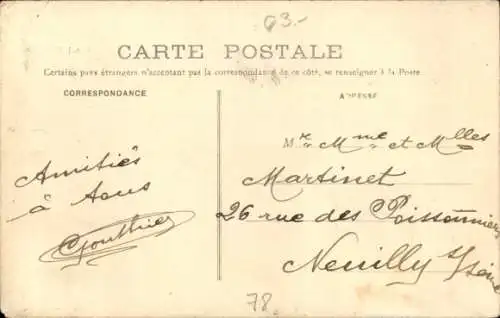 63.-
CARTE POSTALE
Certains pays étrangers n'acceptant pas la correspondance de ce côté, se renseigner à la Poste
CORRESPONDANCE
ADRESSE
Mr Mme et Mlles
Martinet
26 rue des Poissonniers
Neuilly s/Seine
Amitiés
à tous
Gouthier
78